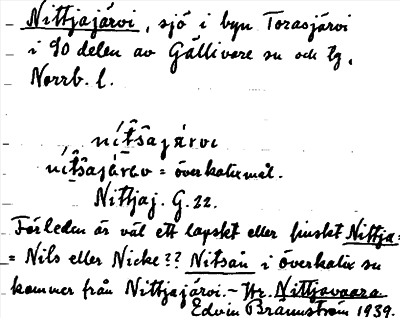 Nittjajärvi, sjö i byn Torasjärvi
i SO delen av Gällivare sn och tg,
Norrb. l.
nít̂ŝajȧrvi
nít̂ŝajȧrəv = överkalixmål.
Nittjaj. G. 22.
Förleden är väl ett lapskt eller finskt Nittja-
= Nils eller Nicke?? Nitsån i överkalix sn
kommer från Nittjajärvi. - Jfr. Nittjavaara.
Edvin Brännström 1939.